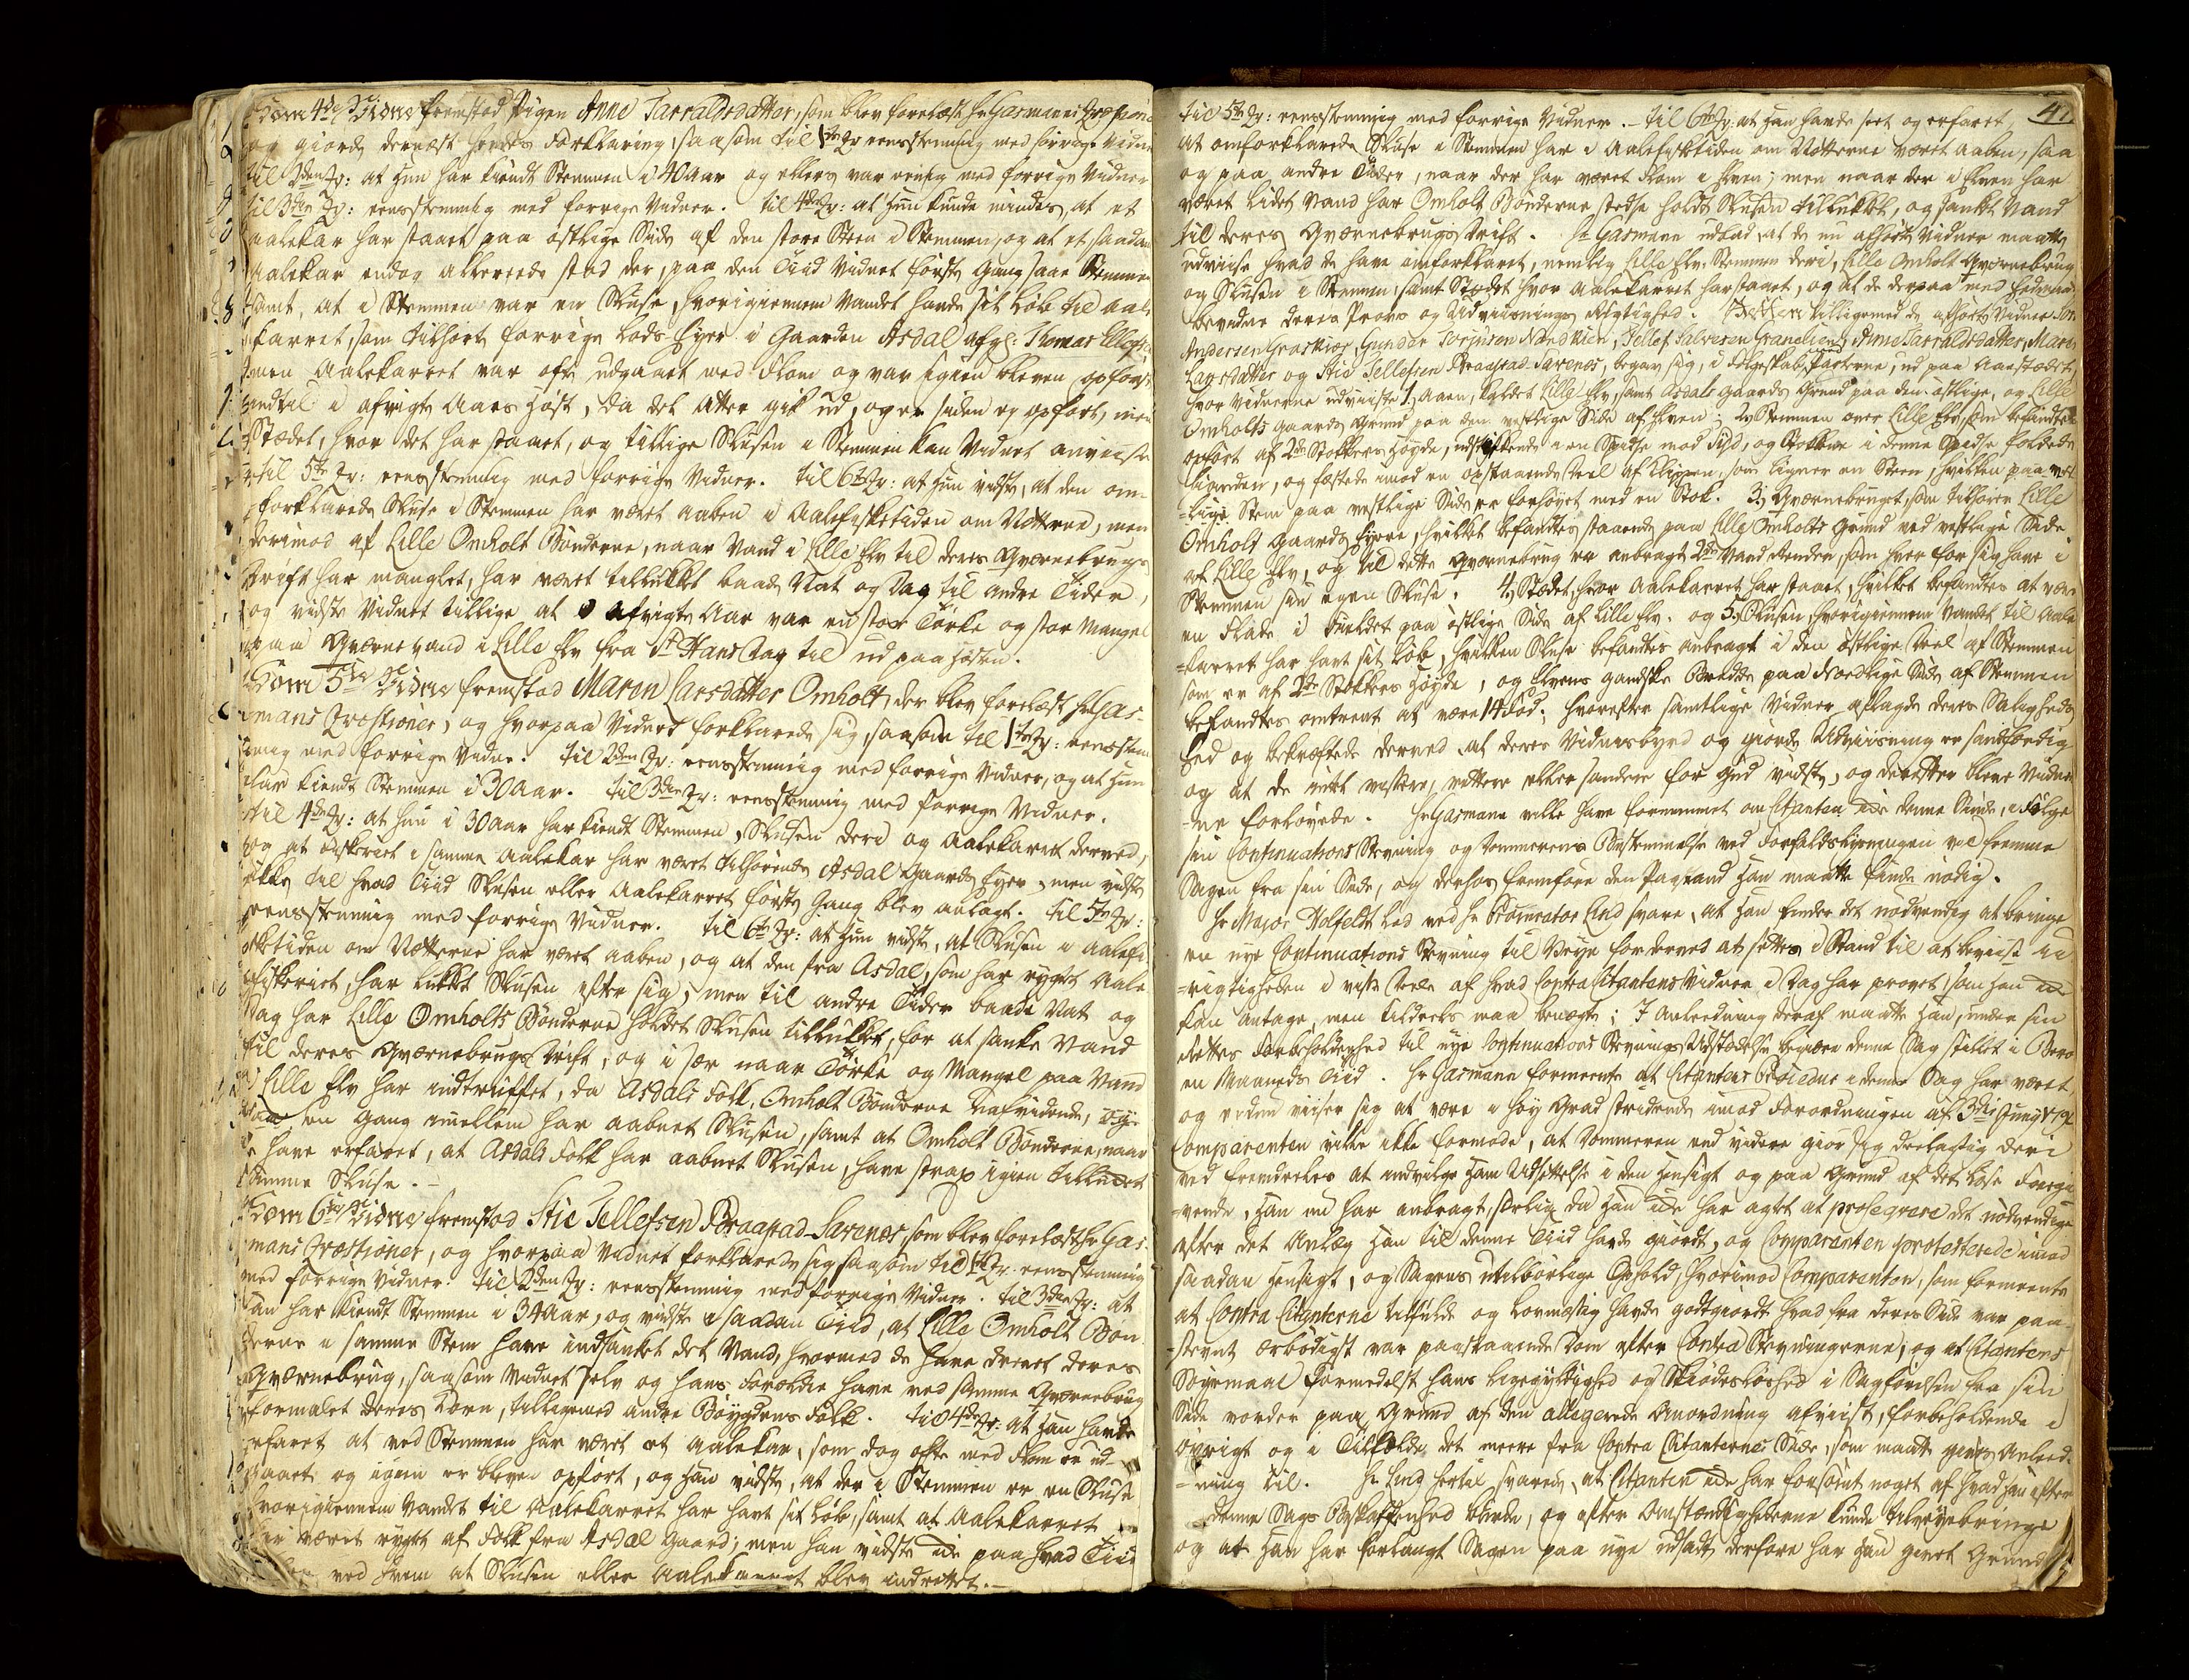 Som 4de Vidne fremstod Pigen Anne Tarraldsdatter, som blev forelæst hr Gasmans
og giorde dernæst hendes Forklaring saasom til 1te Qv: eensstemmig med forrige Vidne
til 2den Qv: at hun har kiendt Stemmen i 40 Aar og ellers var eenig med forrige Vidner
til 3die Qv: eensstemmig med forrige Vidner. til 4de Qv: at hun kunde mindes, at et
Aalekar har staaet paa østlige Side af den store Steen i Stemmen, og at et saadan
Aalekar endog allereede stod der, paa den Tiid Vidnet første Gang saae Stemmen
samt, at i Stemmen var en Sluse, hvorigiennem Vandet havde sit Løb til Aale
karret, som tilhørte forrige Lods Eyer i Gaarden Asdal afg: Thomas Ellefsen
men Aalekarret var ofte udgaaet med Flom og var igien bleven opført
indtil i afvigte Aars Høst, da det atter gik ud, og er siden ey opført, men
Stædet, hvor det har staaet, og tillige Slusen i Stemmen kan Vidnet anviise
til 5te Qv: eensstemmig med forrige Vidner. til 6te Qv: at hun vidste, at den om-
forklarede Sluse i Stemmen har været aaben i Aalefisketiden om Nætterne, men
derimod af Lille Omholt Bønderne, naar Vand i Lille Elv til deres Qværnebrugs
Drift har manglet, har været tillukket baade Nat og Dag til andre Tider,
og vidste Vidnet tillige at afvigte Aar var en stor Tørke og stor Mangel
paa Qværnevand i Lille Elv fra St Hans Dag til ud paa Høsten.
Som 5te Vidne fremstod Maren Larsdatter Omholt, der blev forelæst hr Gas-
mans Qvæstioner, og hvorpaa Vidnet forklarede sig, saasom til 1te Qv: eensstem
mig med forrige Vidne. til 2den Qv: eensstemmig med forrige Vidner, og at hun
har kiendt Stemmen i 30 Aar. til 3die Qv: eensstemmig med forrige Vidner.
til 4de Qv: at hun i 30 Aar har kiendt Stemmen, Slusen deri og Aalekarret derved,
og at Fiskeriet i samme Aalekar har været tilhørende Asdal Gaards Eyer, men vidste
ikke til hvad Tiid Slusen eller Aalekarret første Gang blev anlagt. til 5te Qv:
eensstemmig med forrige Vidner. til 6te Qv: at hun vidste, at Slusen i Aalefi
sketiden om Nætterne har været aaben, og at den fra Asdal, som har rygtet Aale
fiskeriet, har lukket Slusen efter sig, men til andre Tider baade Nat og
Dag har Lille Omholts Bønderne holdet Slusen tillukket, for at sanke Vand
til deres Qværnebrugs Drift, og i sær naar Tørke og Mangel paa Vand
i Lille Elv har indtruffet, da Asdals Folk, Omholt Bønderne uafvidende,
en Gang imellem har aabnet Slusen, samt at Omholt Bønderne, naar
de have erfaret, at Asdals Folk har aabnet Slusen, have strax igien tillukket
samme Sluse.
Som 6te Vidne fremstod Stie Tellefsen Braastad-Sævenes, som blev forelæst hr Gas-
mans Qvæstioner, og hvorpaa Vidnet forklarede sig saasom til 1te Qv: eensstemmig
med forrige Vidner. til 2den Qv: eensstemmig med forrige Vidner. til 3die Qv: at
han har kiendt Stemmen i 34 Aar, og vidste i saadan Tiid, at Lille Omholt Bøn-
derne i samme Stem have indsanket det Vand, hvormed de have drevet deres
Qværnebrug, saasom Vidnet selv og hans Forældre have ved samme Qværnebrug
formalet deres Korn, tilligemed andre Bøygdens Folk. til 4de Qv: at han havde
erfaret at ved Stemmen har været et Aalekar, som dog ofte med Flom er ud-
gaaet og igien er bleven opført, og han vidste, at der i Stemmen er en Sluse
hvorigiennem Vandet til Aalekarret har havt sit Løb, samt at Aalekarret
har været rygtet af Folk fra Asdal Gaard; men han vidste ikke paa hvad Tiid
ved hvem at Slusen eller Aalekarret blev indrettet.
47.
til 5te Qv: eensstemmig med forrige Vidner. - til 6te Qv: at han havde seet og erfaret
at omforklarede Sluse i Stemmen har i Aalefisketiden om Nætterne været aaben, saa
og paa andre Tider, naar der har været Flom i Elven; men naar der i Elven har
været lidet Vand har Omholt Bønderne stedse holdt Slusen tillukket, og sanket Vand
til deres Qværnebrugs Drift. Hr Gasmann udbad at de nu afhørte Vidner maatte
udviise hvad de have omforklaret, nemlig Lille Elv, Stemmen deri, Lille Omholt Qværnebrug
og Slusen i Stemmen, samt Stædet hvor Aalekarret har staaet, og at de derpaa med Eed maa
bevidne deres Provs og Udviisnings Rigtighed. Retten tilligemed de afhørte Vidner
Andersen Groskiær, Gunder Torjusen Nandkien, Tellef Salvesen Granelien, Anne Tarraldsdatter, Maren
Larsdatter og Stie Tellefsen Braastad Sævenes, begav sig, i Følgeskab med Parterne, ud paa Aastædet,
hvor Vidnerne udviiste 1, Aaen, kaldet Lille Elv, samt Asdals Gaards Grund paa den østlige, og Lille
Omholts Gaards Grund paa den vestlige Side af Elven; 2, Stemmen over Lille Elv, som befandtes
opført af 2de Stokkers Høyde, udskydende i en Spidse mod Syd, og Stokkene i denne Spidse foldede
hinanden, og fæstede imod en opstaaende Deel af Klippen, som ligner en Steen, hvilken paa
Stem paa vestlige Side er forhøyet med en Stok. 3, Qværnebruget, som tilhører Lille
Omholt Gaards Eyere, hvilket befandtes staaende paa Lille Omholts Grund ved vestlige Side
af Lille Elv, og til dette Qværnebrug er anbragt 2de Vand Render, som hver for sig have i
Stemmen sin egen Sluse. 4, Stædet, hvor Aalekarret har staaet, hvilket befandtes at være
en Flade i Fieldet paa østlige Side af Lille Elv. og 5, Slusen, hvorigiennem Vandet til Aale
karret har havt sit Løb, hvilken Sluse befandtes anbragt i den østlige Deel af Stemmen
som er af 2de Stokkers Høyde, og Elvens gandske Bredde paa Nordlige Side af Stemmen
befandtes omtrent at være 14 Fod; hvorefter samtlige Vidner aflagde deres Saligheds
Eed og bekræftede derved at deres Vidnesbyrd og giorde Udviisning er sandfærdig
og at de intet vissere, rettere eller sandere for Gud vidste, og derefter bleve Vidner
-ne forløvede. Hr Gasmann ville have fornummet om Citanten ikke denne Sinde, i Følge
sin Continuations Stevning og Dommerens Bestemmelse ved Forfaldskiendningen vil fremme
Sagen fra sin Side, og derhos fremføre den Paastand han maatte finde nødig.
Hr Major Stolfeldt lod ved hr Procurator Lind svare, at han finder det nødvendig at bringe
en nye Continuations Stevning til Veye for derved at settes i Stand til at beviise
-rigtigheden i visse Deele af hvad Contra Citantens Vidner i Dag har provet, som han ikke
kan antage, men tildeels maa benægte; I Anleedning deraf maatte han, under sin
Rettes Forbeholdenhed til nye Continuations Stevnings Udstædelse begiære denne Sag stillet i Bero
en Maaneds Tiid. Hr Gasmann formeente at Citantens Procedur i denne Sag har været,
og endnu viiser sig at være i høy Grad stridende imod Forordningen af 3die Junij 1796
Comparenten ville ikke formode, at Dommeren end videre giør sig deelagtig deri
ved fremdeeles at indvilge ham Udsettelse i den Hensigt og paa Grund af det løse Foregi
-vende, han nu har anbragt, særlig da han ikke har agtet at proseqvere det nødvendige
efter det Anlæg han til denne Tiid havde giordt, og Comparenten protesterede imod
saadan Hensigt, og Sagens utilbørlige Ophold, hvorimod Comparenten, som formeente
at Contra Citanterne tilfulde og lovmæssig havde godtgiordt hvad fra deres Side var paa-
-stevnt ærbødigst var paastaaende Dom efter Contra Stevningerne, og at Citantens
Søgsmaal formedelst hans Ligegyldighed og Skiødesløshed i Sagførelsen fra sin
Side vorder paa Grund af den allegerede Anordning afviist, forbeholdende i
øvrigt og i Tilfælde det meere fra Contra Citanternes Side, som maatte gives Anleed-
-ning til. Hr Lind hertil svarede, at Citanten ikke har forsømt noget af hvad han efter
denne Sags Beskaffenhed burde, og efter Omstændighederne kunde tilveyebringe
og at han har forlangt Sagen paa nye udsadt, derfore har han givet Grund